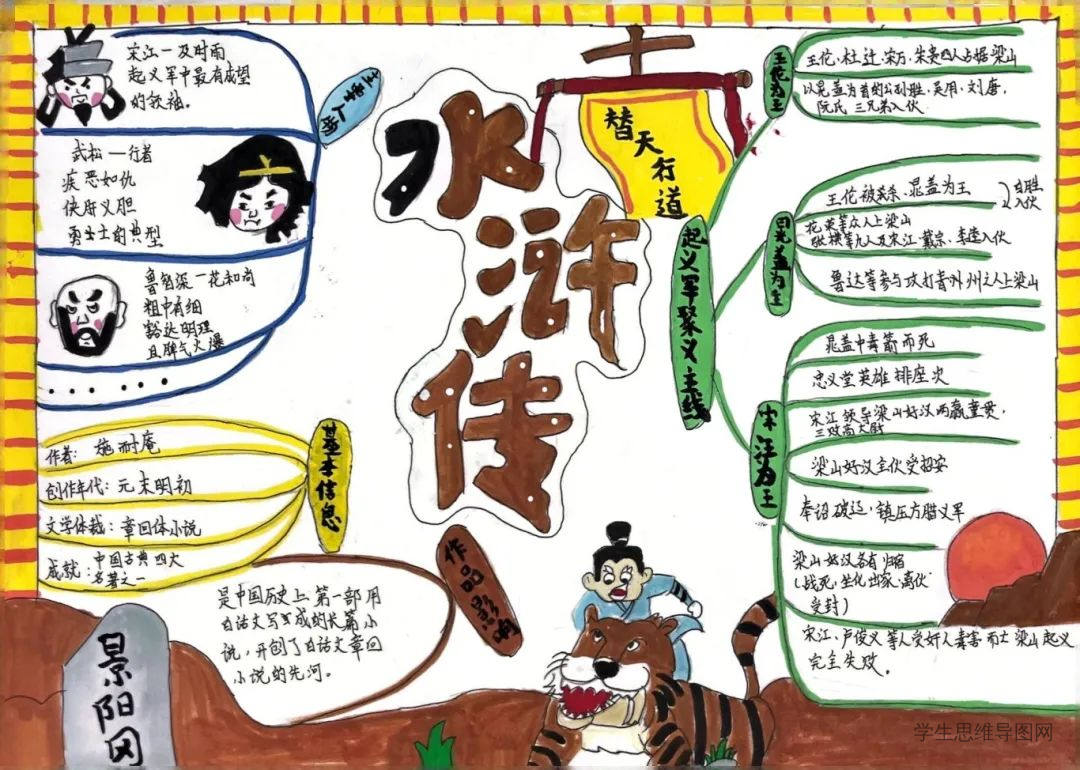 水浒传
替天行道
主要人物
宋江—及时雨
起义军中最有威望
的领袖。
武松—行者
疾恶如仇
侠肝义胆
勇士的典型
鲁智深—花和尚
粗中有细
豁达明理
且脾气火爆
······
基本信息
作者：施耐庵
创作年代：元末明初
文学体裁：章回体小说
成就：中国古典四大
名著之一
作品影响
是中国历史上第一部用
白话文写成的长篇小
说，开创了白话文章回
小说的先河。
景阳冈
起义军聚义主线
王伦为主
王伦、杜迁、宋万、朱贵四人占据梁山
以晁盖为首的公孙胜、吴用、刘唐、
阮氏三兄弟入伙
晁盖为主
王伦被杀、晁盖为王
白胜
入伙
花荣等众人上梁山
张横等九人及宋江、戴宗、李逵入伙
鲁达等参与攻打青州 州之人上梁山
宋江为主
晁盖中毒箭而死
忠义堂英雄排座次
宋江领导梁山好汉两赢童贯、
三败高太尉
梁山好汉全伙受招安
奉诏破辽，镇压方腊义军
梁山好汉各有归宿
（战死、坐化、出家、离伙、
受封）
宋江、卢俊义等人受奸人毒害而亡 梁山起义
完全失败。
学生思维导图网